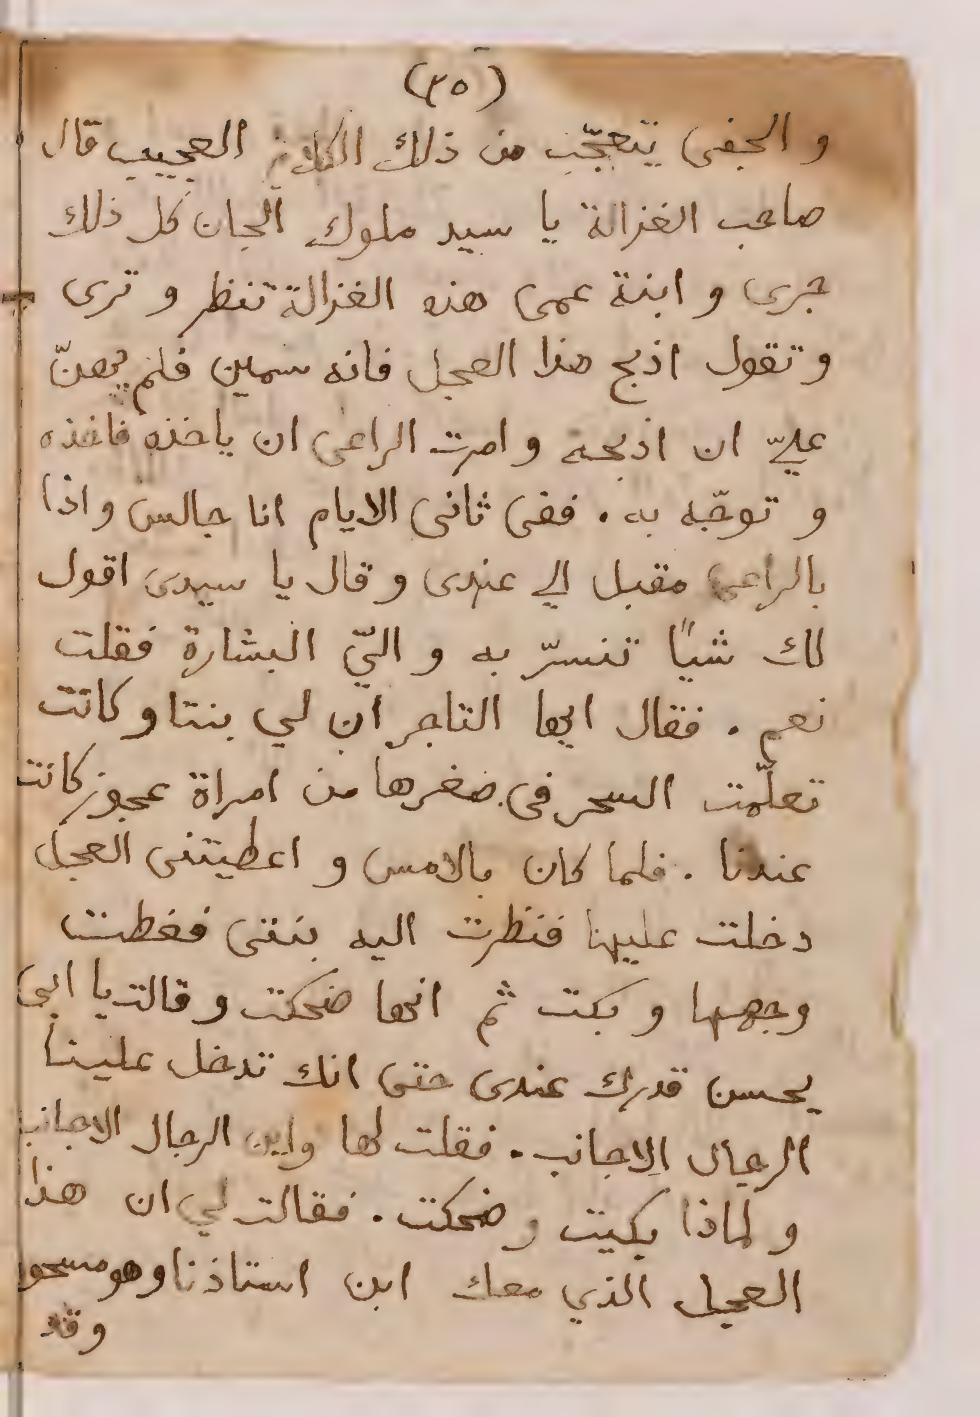 (٢٥)
و الجنى يتعجّب من ذلك الكلام العجيب قال
صاحب الغزالة يا سيد ملوك الجان كل ذلك
جرى و ابنة عمى هذه الغزالة تنظر و ترى
و تقول اذبح هذا العجل فانه سمين فلم يهنّ
عليّ ان اذبحه و امرت الراعى ان ياخذه فاخذه
و توجّه به . ففى ثانى الايام انا جالس و اذا
بالراعى مقبل الي عندى و قال يا سيدى اقول
لك شيًا تنسرّ به و اليّ البشارة فقلت
نعم . فقال ايها التاجر ان لي بنتا و كانت
تعلّمت السحر فى صغرها من امراة عجوز كانت
عندنا . فلما كان بالامس و اعطيتنى العجل
دخلت عليها فنظرت اليه بنتى فغطت
وجهها و بكت ثم انها ضحكت و قالت يا ابى
يحسن قدرك عندى حتى انك تدخل علينا
الرجال الاجانب . فقلت لها واين الرجال الاجانب
و لماذا بكيت و ضحكت . فقالت لي ان هذا
العجل الذي معك ابن استاذنا و هو مسحور
و قد